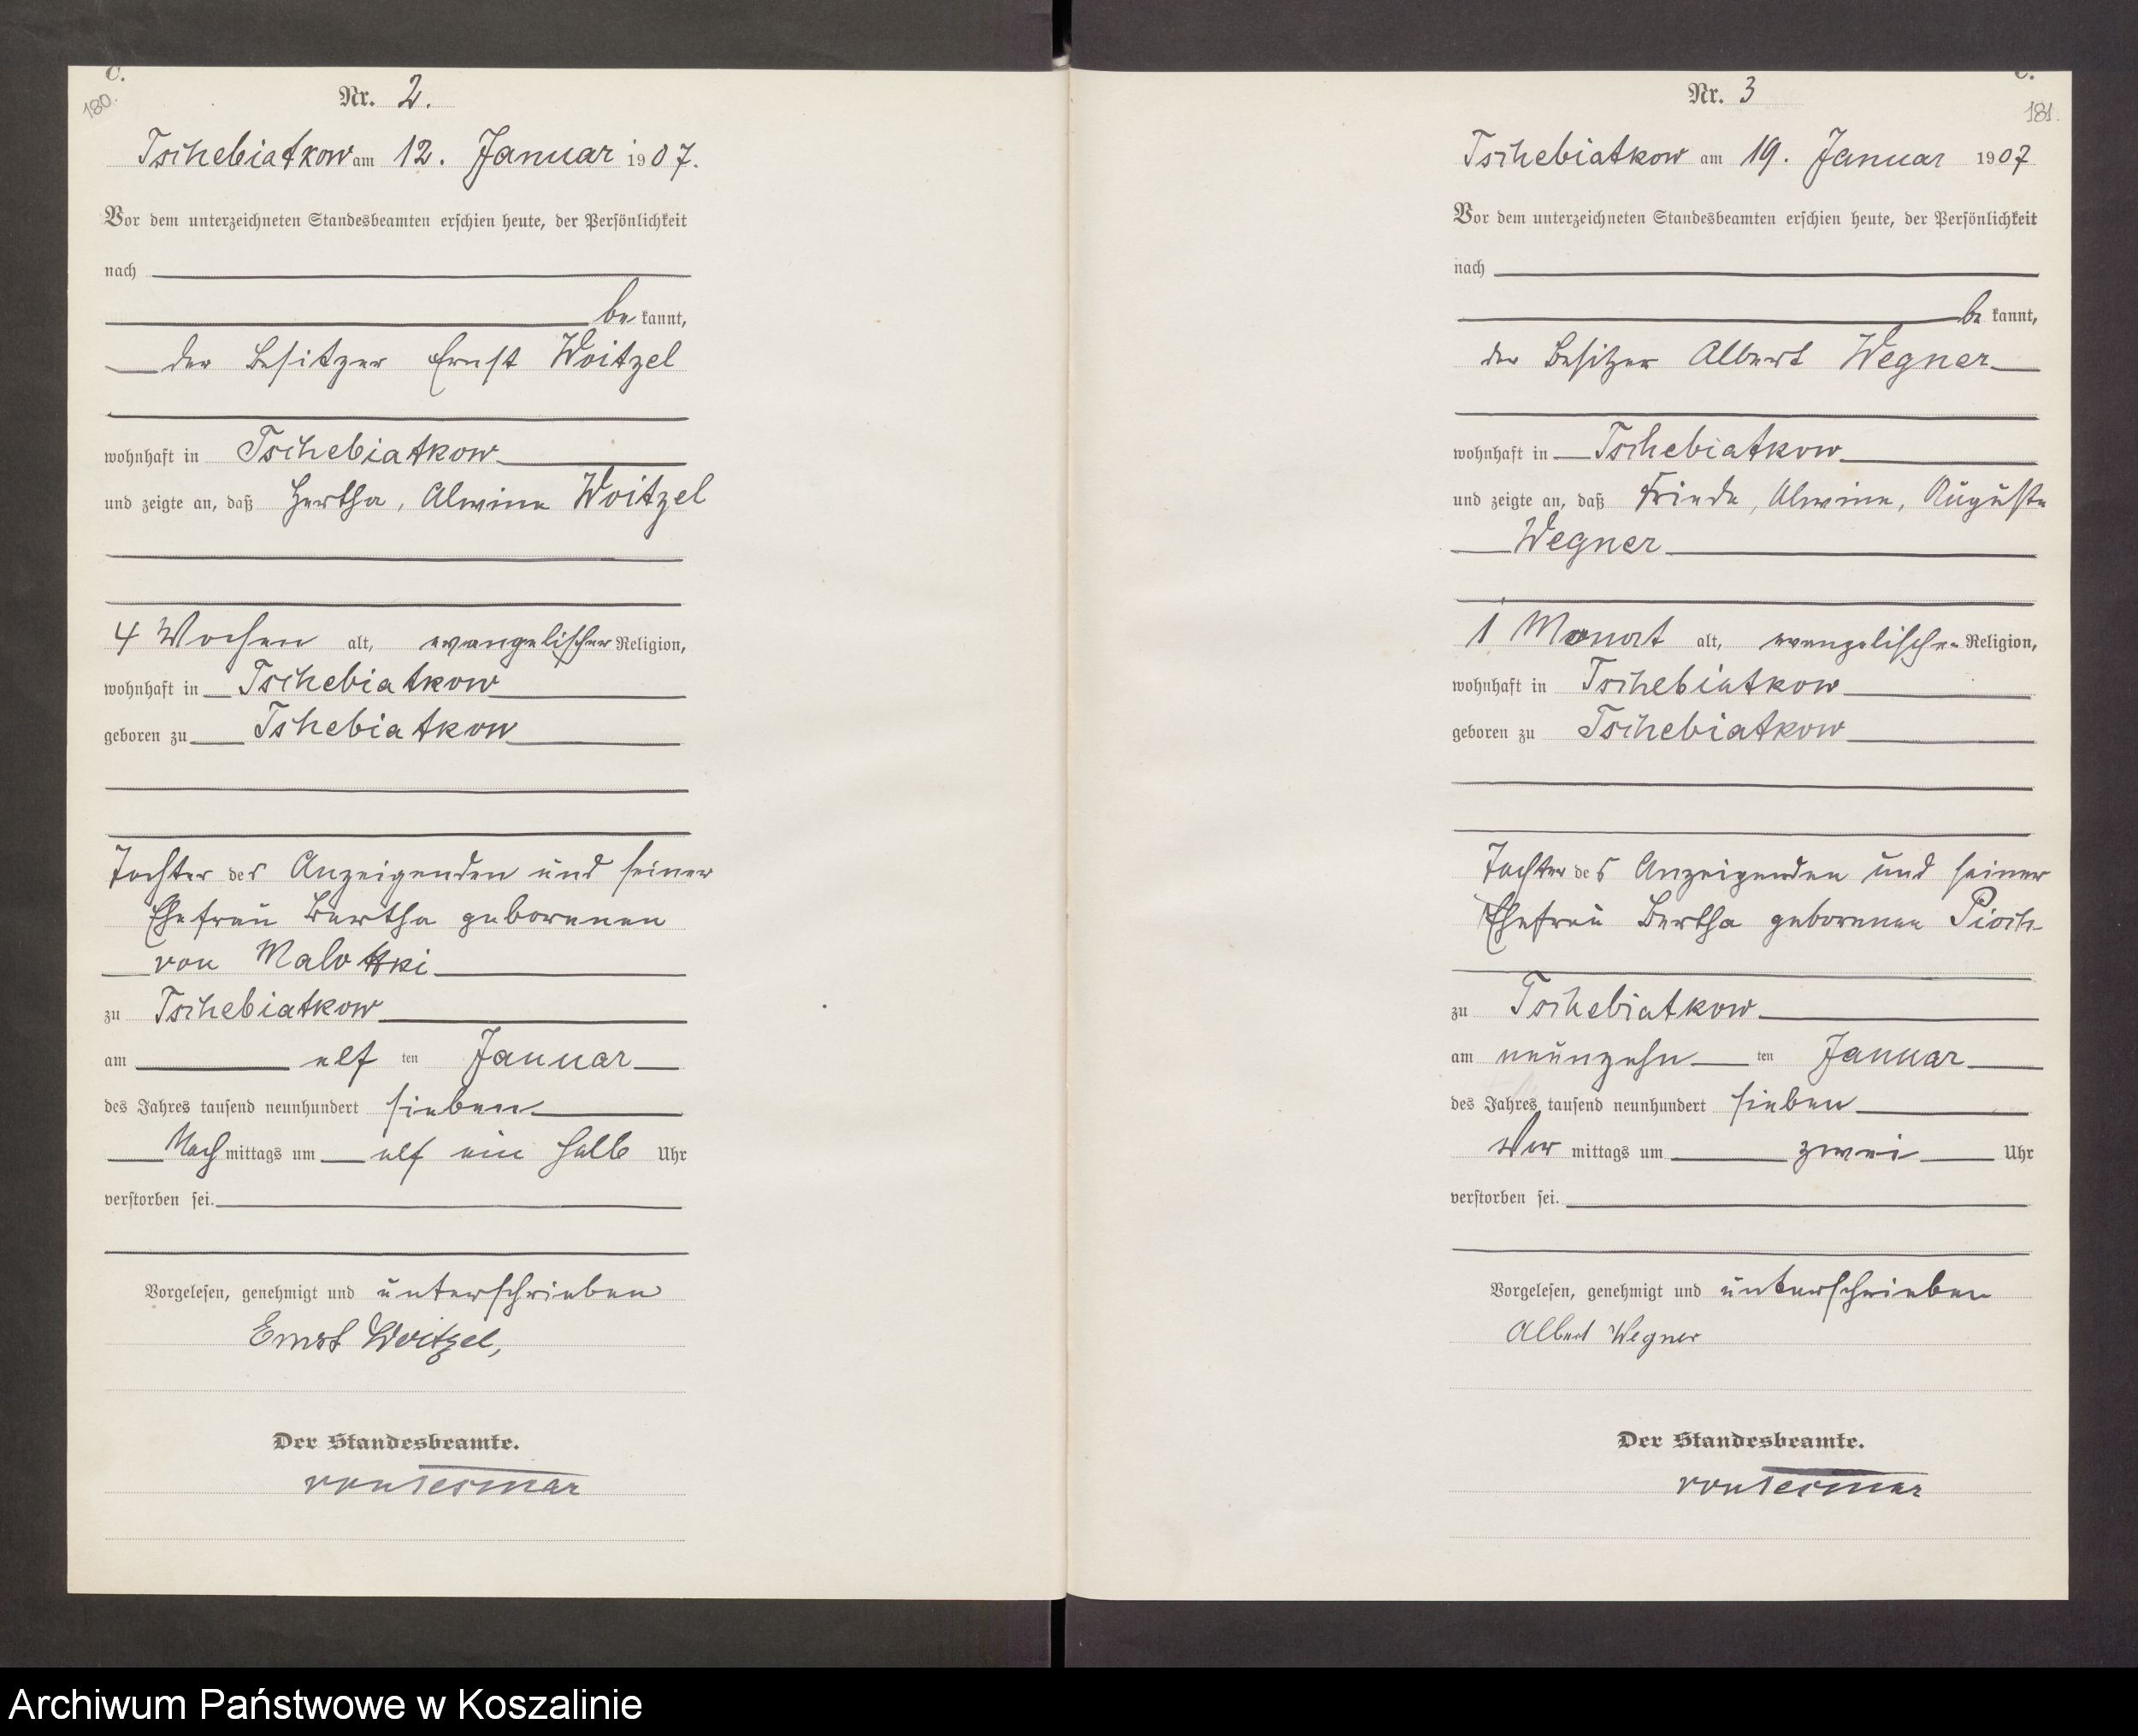 C.
180.
Nr. 2.
Tschebiatkow am 12. Januar 1907.
Vor dem unterzeichneten Standesbeamten erschien heute, der Persönlichkeit
nach
be kannt,
der Besitzer Ernst Woitzel
wohnhaft in Tschebiatkow
und zeigte an, daß Hertha, Alwine Woitzel
4 Wochen alt, evangelischer Religion,
wohnhaft in Tschebiatkow
geboren zu Tshebiatkow
Tochter des Anzeigenden und seiner
Ehefrau Bertha geborenen
von Malottki
zu Tschebiatkow
am elf ten Januar
des Jahres tausend neunhundert sieben
Nach mittags um elf ein halb Uhr
verstorben sei.
Vorgelesen, genehmigt und unterschrieben
Ernst Woitzel,
Der Standesbeamte.
von Tesmar
C.
181.
Nr. 3
Tschebiatkow am 19. Januar 1907
Vor dem unterzeichneten Standesbeamten erschien heute, der Persönlichkeit
nach
be kannt,
der Besitzer Albert Wegner
wohnhaft in Tschebiatkow
und zeigte an, daß Frieda, Alwine, Auguste
Wegner
1 Monat alt, evangelischer Religion,
wohnhaft in Tschebiatkow
geboren zu Tschebiatkow
Tochter des Anzeigenden und seiner
Ehefrau Bertha geborenen Pioch
zu Tschebiatkow
am neunzehn ten Januar
des Jahres tausend neunhundert sieben
Vor mittags um zwei Uhr
verstorben sei.
Vorgelesen, genehmigt und unterschrieben
Albert Wegner
Der Standesbeamte.
von Tesmar
Archiwum Państwowe w Koszalinie